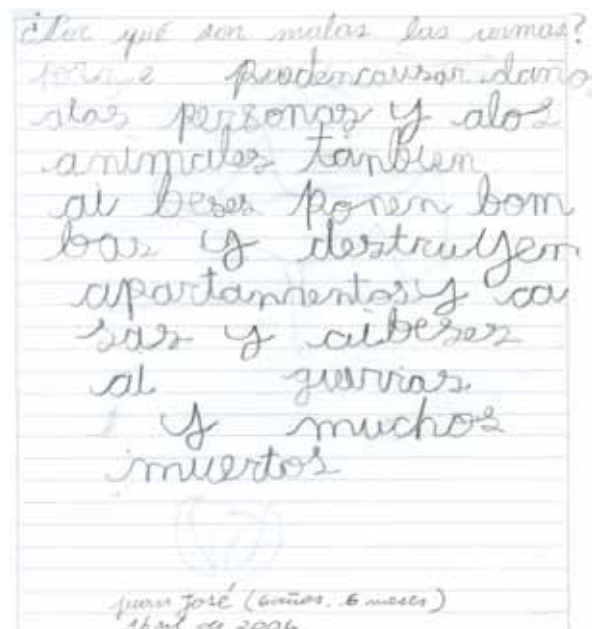 ¿Por qué son malas las armas?
porque puedencausar daño
alas personas y alos
animales tanbien
ai beses ponen bom
bas y destruyen
apartamentos y ca
sas y aibeses
ai guerrias
y muchos
muertos
juan José (6 años, 6 meses)
Abril de 2006